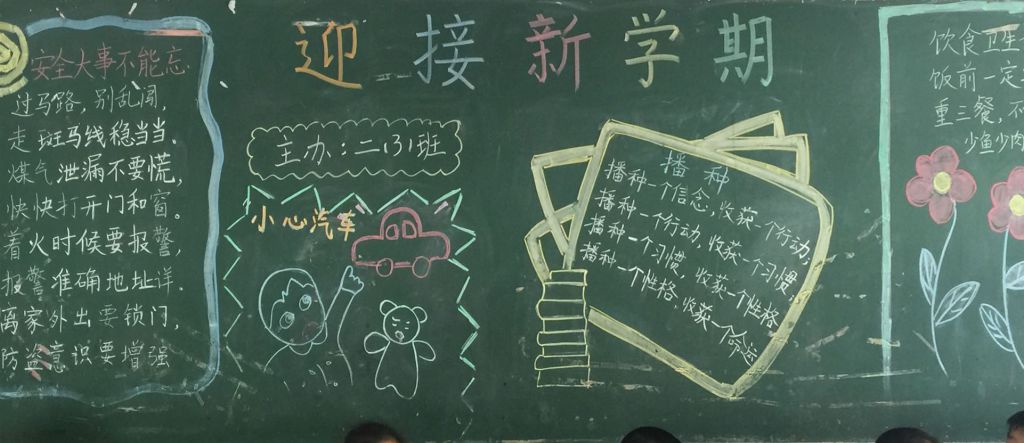 迎接新学期
安全大事不能忘
过马路，别乱闯，
走斑马线稳当当。
煤气泄漏不要慌，
快快打开门和窗。
着火时候要报警，
报警准确地址详。
离家外出要锁门，
防盗意识要增强
主办：二（3）班
小心汽车
播种
播种一个信念，收获一个行动，
播种一个行动，收获一个习惯，
播种一个习惯，收获一个性格，
播种一个性格，收获一个命运
饮食卫生
饭前一定
重三餐，不
少鱼少肉